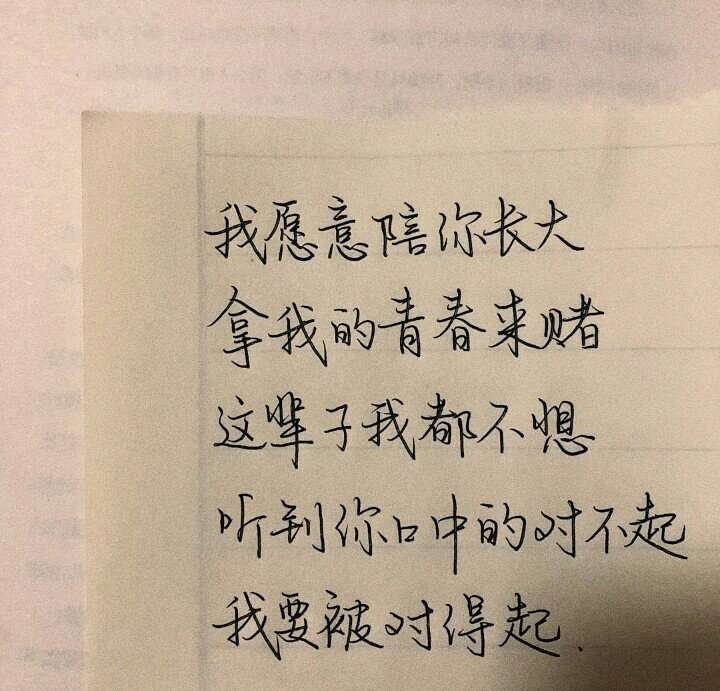 我愿意陪你长大
拿我的青春来赌
这辈子我都不想
听到你口中的对不起
我要被对得起.